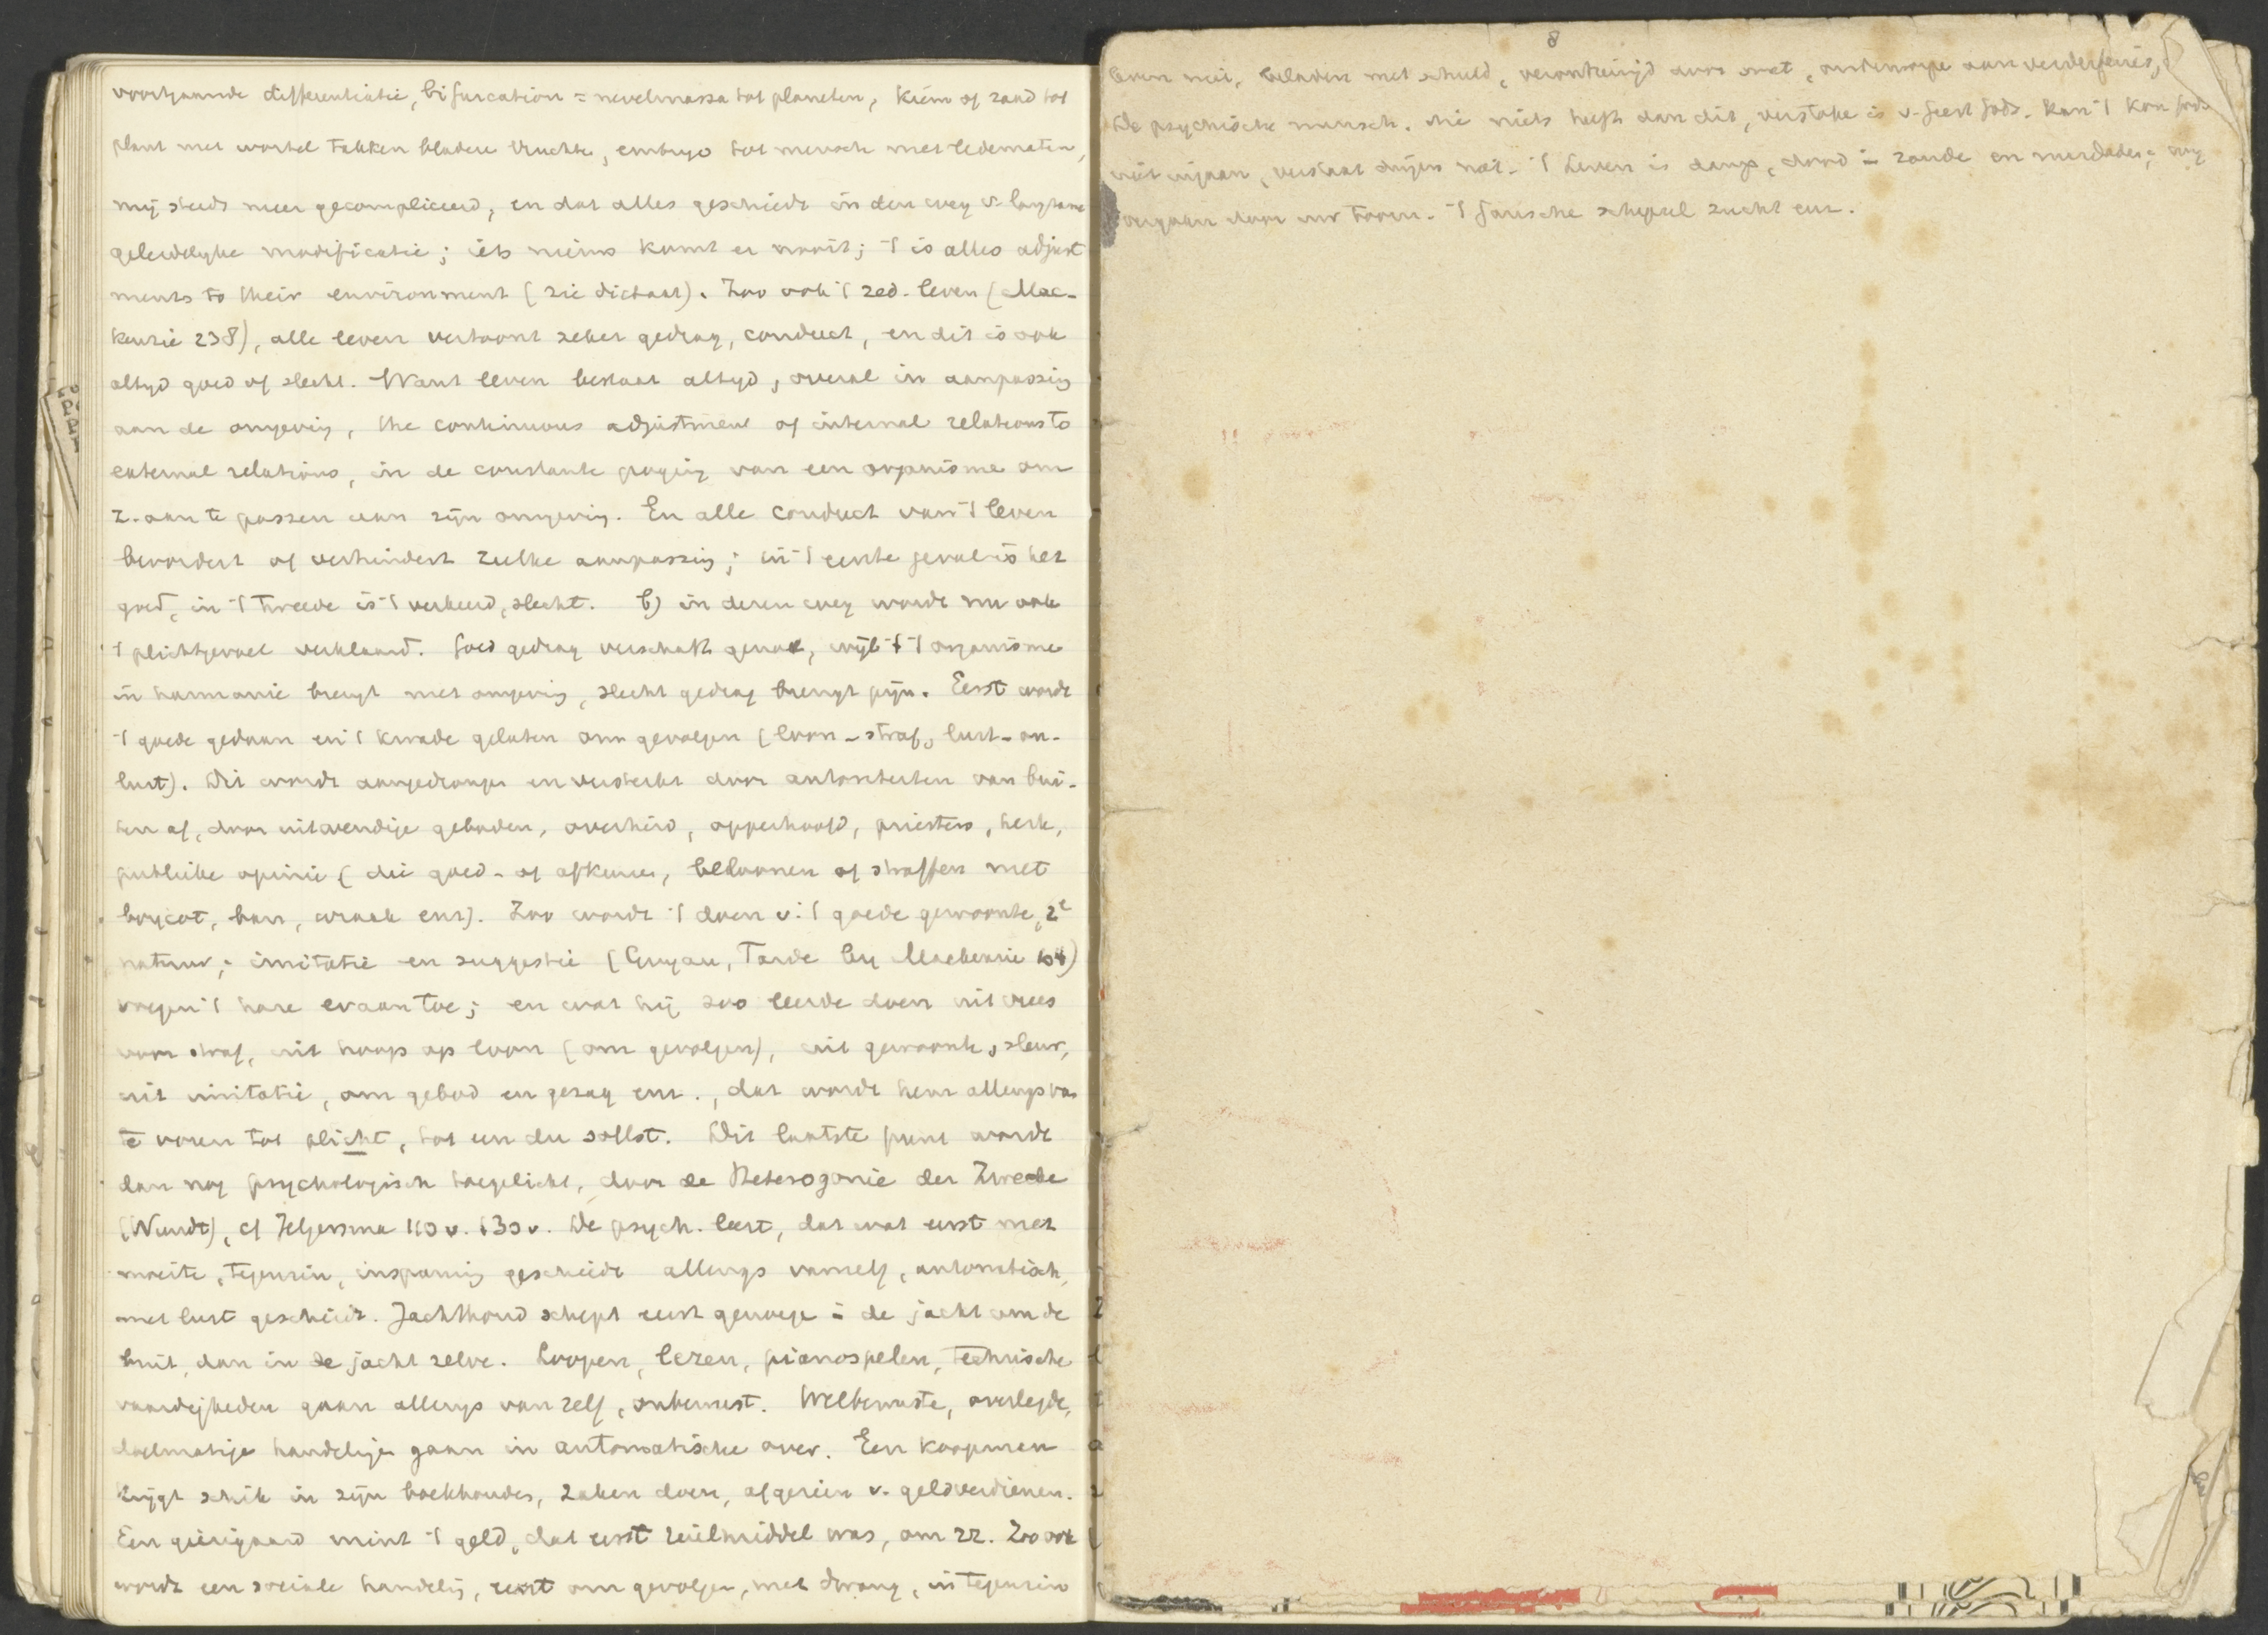 voortgaande differentiatie, bifurcation = nevelmassa tot planeten, kiem of zaad tot
plant met wortel takken bladere vruchte, embryo tot mensch met ledematen,
mij steeds meer gecompliceerd, en dat alles geschiedt in den weg v. langzame
geleidelyke modificatie; iets nieuws komt er nooit; 't is alles adjust
ments to their environment (zie dictaat). Zoo ook 't zed. leven (Mac-
kenzie 238), alle leven vertoont zeker gedrag, conduct, en dit is ook
altyd goed of slecht. Want leven bestaat altyd, overal in aanpassing
aan de omgeving, the continuous adjustment of internal relations to
external relations, in de constante poging van een organisme om
z. aan te passen aan zijn omgeving. En alle conduct van 't leven
bevordert of verhindert zulke aanpassing; in 't eerste geval is het
goed, in 't tweede is 't verkeerd, slecht. b) in dezen weg wordt nu ook
't plichtgevoel verklaard. Goed gedrag verschaft genot, wijl 't 't organisme
in harmonie brengt met omgeving, slecht gedrag brengt pijn. Eerst wordt
't goede gedaan en 't kwade gelaten om gevolgen (loon - straf, lust - on-
lust). Dit wordt aangedrongen en versterkt door autoriteiten van bui-
ten af, door uitwendige geboden, overheid, opperhoofd, priesters, kerk,
publieke opinie (die goed- of afkeuren, beloonen of straffen met
boycot, ban, wraak enz). Zoo wordt 't doen v. 't goede gewoonte, 2e
natuur; imitatie en suggestie (Guyau, Tarde by Mackenzie 104)
voegen 't hare eraan toe; en wat hij zoo leerde doen uit vrees
voor straf, uit hoop op loon (om gevolgen), uit gewoonte, sleur,
uit imitatie, om gebod en gezag enz., dat wordt hem allengs van
te voren tot plicht, tot een du sollst. Dit laatste punt wordt
dan nog psychologisch toegelicht, door de Heterogonie der Zwecke
(Wundt), cf Jelgersma 110 v. 130 v. De psych. leert, dat wat eerst met
moeite, tegenzin, inspanning geschiedt allengs vanzelf, automatisch,
met lust geschiedt. Jachthond schept eerst genoege in de jacht om de
buit, dan in de jacht zelve. Loopen, lezen, pianospelen, technische
vaardigheden gaan allengs van zelf, onbewust. Welbewuste, overlegde,
doelmatige handelinge gaan in automatische over. Een koopman
krijgt schik in zijn boekhouden, zaken doen, afgezien v. geldverdienen.
Een gierigaard mint 't geld, dat eerst ruilmiddel was, om zz. Zoo ook
wordt een sociale handeling, eerst om gevolgen, met dwang, in tegenzin
8
leven niet, beladen met schuld, verontreinigd door smet, onderworpe aan verderfenis,
De psychische mensch, die niets heeft dan dit, verstoke is v. Geest Gods. kan 't kon. Gods
niet ingaan, verstaat dingen niet. 't Leven is damp, dood in zonde en misdaden;
vergaan door uw toorn. 't Gansche schepsel zucht enz.